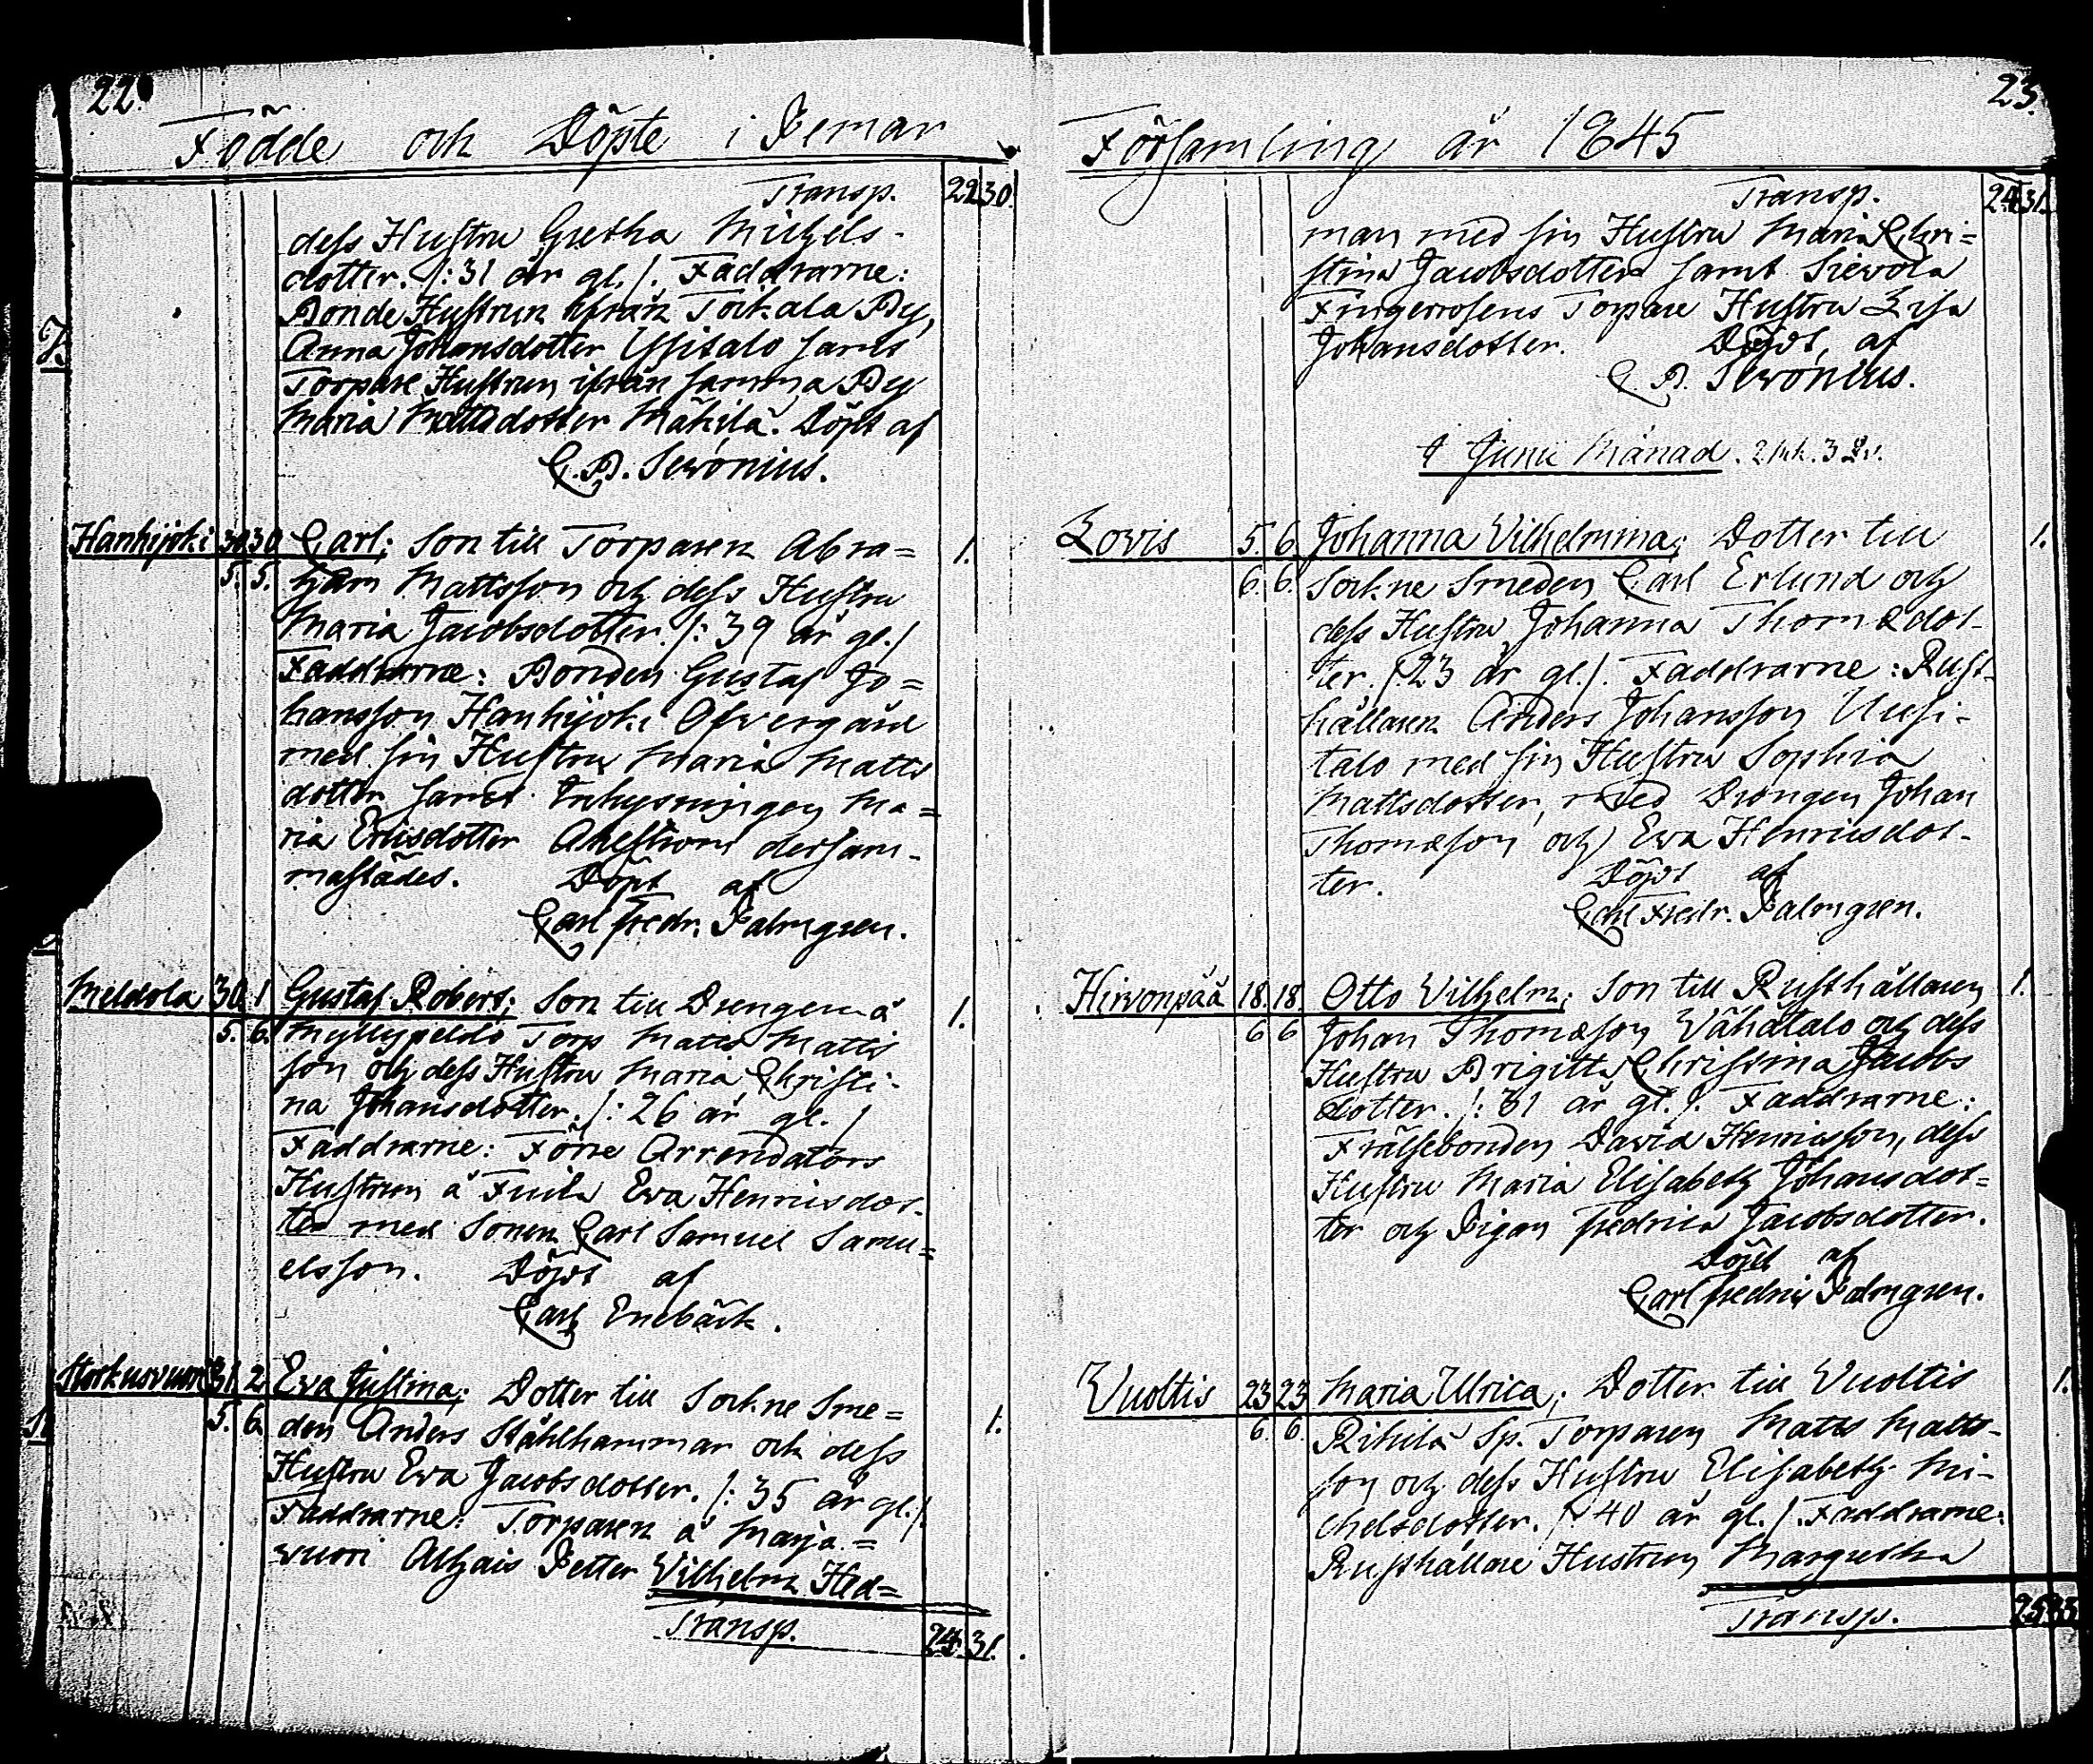 22.
Födde och Döpte i Pemar
Transp. 22 30.
dess Hustru Gretha Michels-
dotter. /: 31 år gl. /. Faddrarne:
Bonde Hustrun ifrån Tockala By,
Anna Johansdotter Ylitalo samt
Torpare Hustrun ifrån samma By
Maria Mattsdotter Mäkilä. Döpt af
C. B. Sevonius.
Hanhijoki 30 30 Carl; Son till Torparen Abra= 1.
5. 5. ham Mattsson och dess Hustru
Maria Jacobsdotter. /: 39 år gl. /
Faddrarne: Bonden Gustaf Jo=
hansson Hanhijoki Öfvergård
med sin Hustru Maria Matts
dotter samt Inhysningen Ma=
ria Ericsdotter Ahlström dersam-
mastädes. Döpt af
Carl Fredr. Palmgren.
Meldola 30. 1 Gustaf Robert; Son till Drengen å 1.
5. 6. Myllypeldo Torp Matts Matts
son och dess Hustru Maria Christi-
na Johansdotter. /: 26 år gl. /
Faddrarne: Förre Arrendators
Hustrun å Fuila Eva Henricsdot-
ter med Sonen Carl Samuel Samu=
elsson. Döpt af
Carl Enebäck.
Storkusvuori 31. 2 Eva Justina; Dotter till Sockne Sme= 1.
5. 6. den Anders Stålhammar och dess
Hustru Eva Jacobsdotter. /: 35 år gl. /.
Faddrarne: Torparen å Marja=
wuori Alhais Petter Vilhelm Hed=
Transp. 24. 31.
23.
Församling år 1845
Transp. 24 31.
man med sin Hustru Maria Chri=
stina Jacobsdotter samt Sievola
Fingerroosens Torpare Hustru Lisa
Johansdotter. Döpt af
C. B. Sevonius.
I Junii Månad. 2 Mk. 3 Qv.
Lovis 5. 6. Johanna Vilhelmina; Dotter till 1.
6. 6. Sockne Smeden Carl Erlund och
dess Hustru Johanna Thomædot-
ter. /: 23 år gl. /. Faddrarne: Rust-
hållaren Anders Johansson Uusi-
talo med sin Hustru Sophia
Mattsdotter, med Drengen Johan
Thomæson och Eva Henricsdot-
ter. Döpt af
Carl Fredr. Palmgren.
Hirvonpää 18. 18. Otto Vilhelm; Son till Rusthållaren 1.
6 6 Johan Thomæson Vähätalo och dess
Hustru Brigitta Christina Jacobs
dotter. /: 31 år gl. /. Faddrarne:
Frälsebonden David Henricsson, dess
Hustru Maria Elisabeth Johansdot=
ter och Pigan Fredrica Jacobsdotter.
Döpt af
Carl Fredric Palmgren.
Vuoltis 23 23 Maria Ulrica; Dotter till Vuoltis 1.
6. 6. Rikilä Sp. Torparen Matts Matts-
son och dess Hustru Elisabeth Mi-
chelsdotter. /: 40 år gl. /. Faddrarne:
Rusthållare Hustrun Margretha
Transp. 25 33